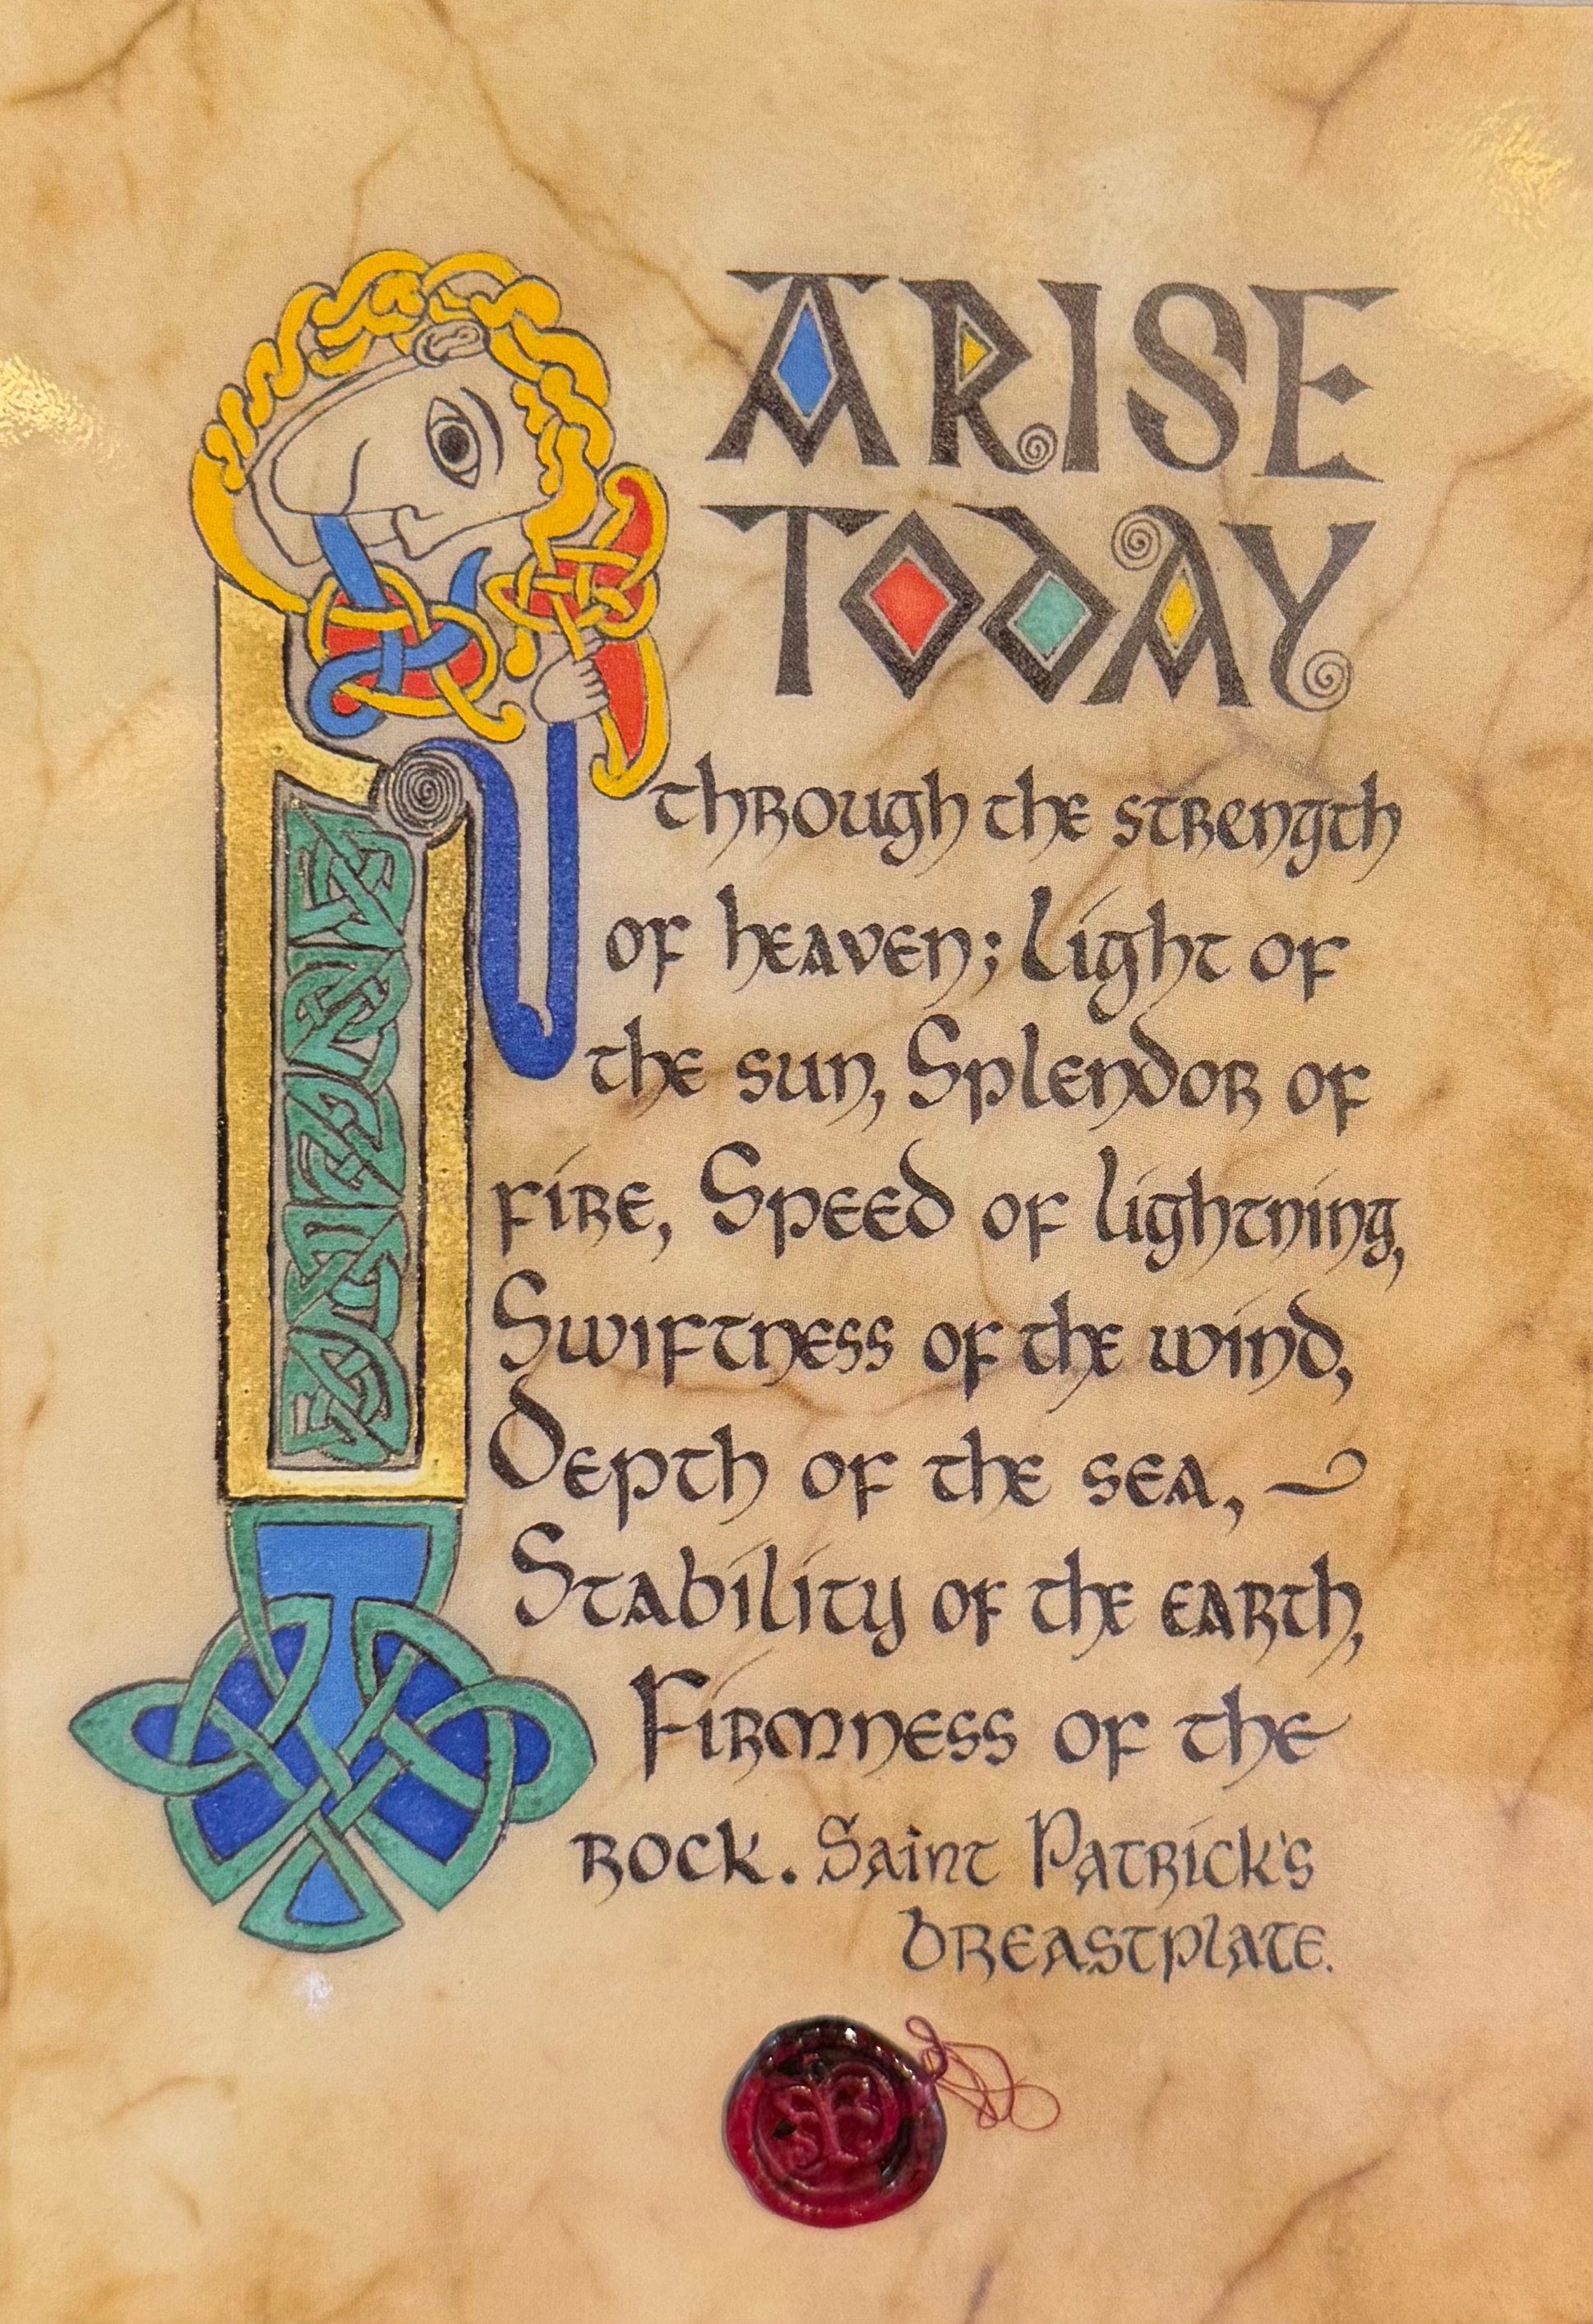 I ARISE
TODAY
through the strength
of heaven; Light of
the sun, Splendor of
fire, Speed of lightning,
Swiftness of the wind,
Depth of the sea, ~
Stability of the earth,
Firmness of the
rock. Saint Patrick's
breastplate.